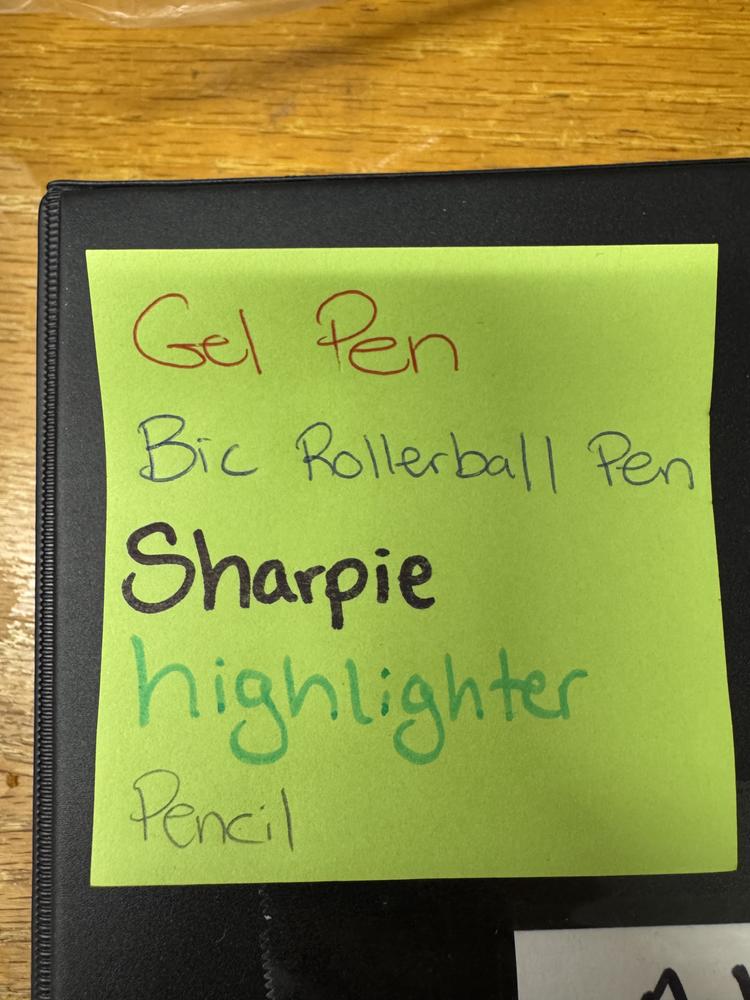 Gel Pen
Bic Rollerball Pen
Sharpie
highlighter
Pencil